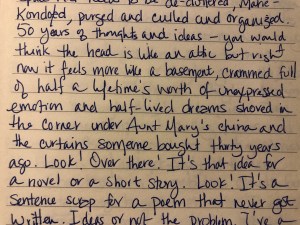 needs to be de-cluttered, Marie-
Kondoted, purged and culled and organised.
50 years of thoughts and ideas – you would
think the head is like an attic but right
now it feels more like a basement, crammed full
of half a lifetime's worth of unexpressed
emotion and half-lived dreams shoved in
the corner under Aunt Mary's china and
the curtains someone bought thirty years
ago. Look! Over there! It's that idea for
a novel or a short story. Look! It's a
sentence for a poem that never got
written. Ideas or not the problem. I've a